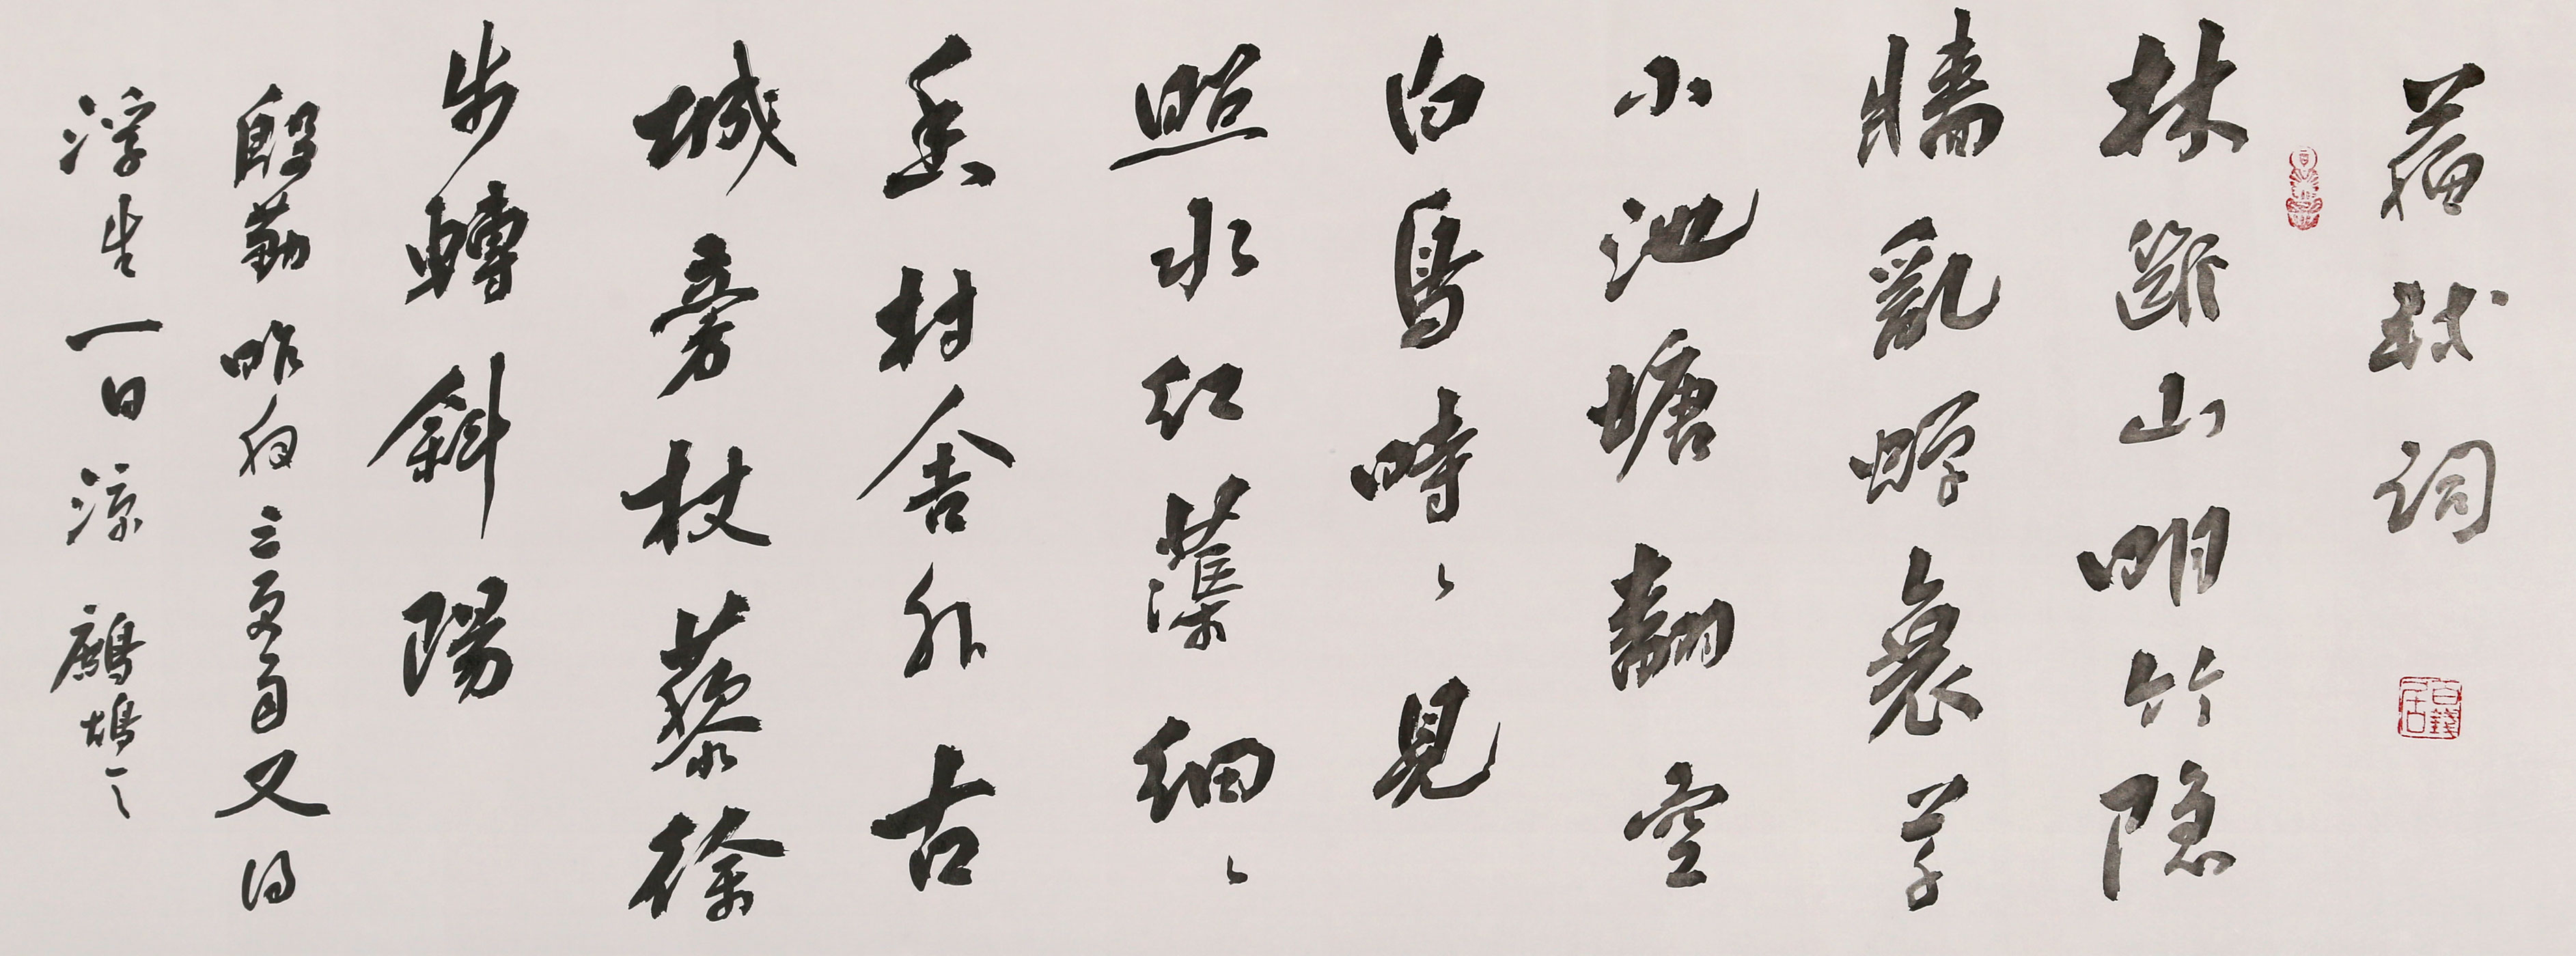 蘇軾詞
林斷山明竹隱
牆亂蟬衰草
小池塘翻空
白鳥時〻見
照水紅蕖細〻
香村舍外古
城旁杖藜徐
步轉斜陽
殷勤昨夜三更雨又得
浮生一日涼 鷓鴣天